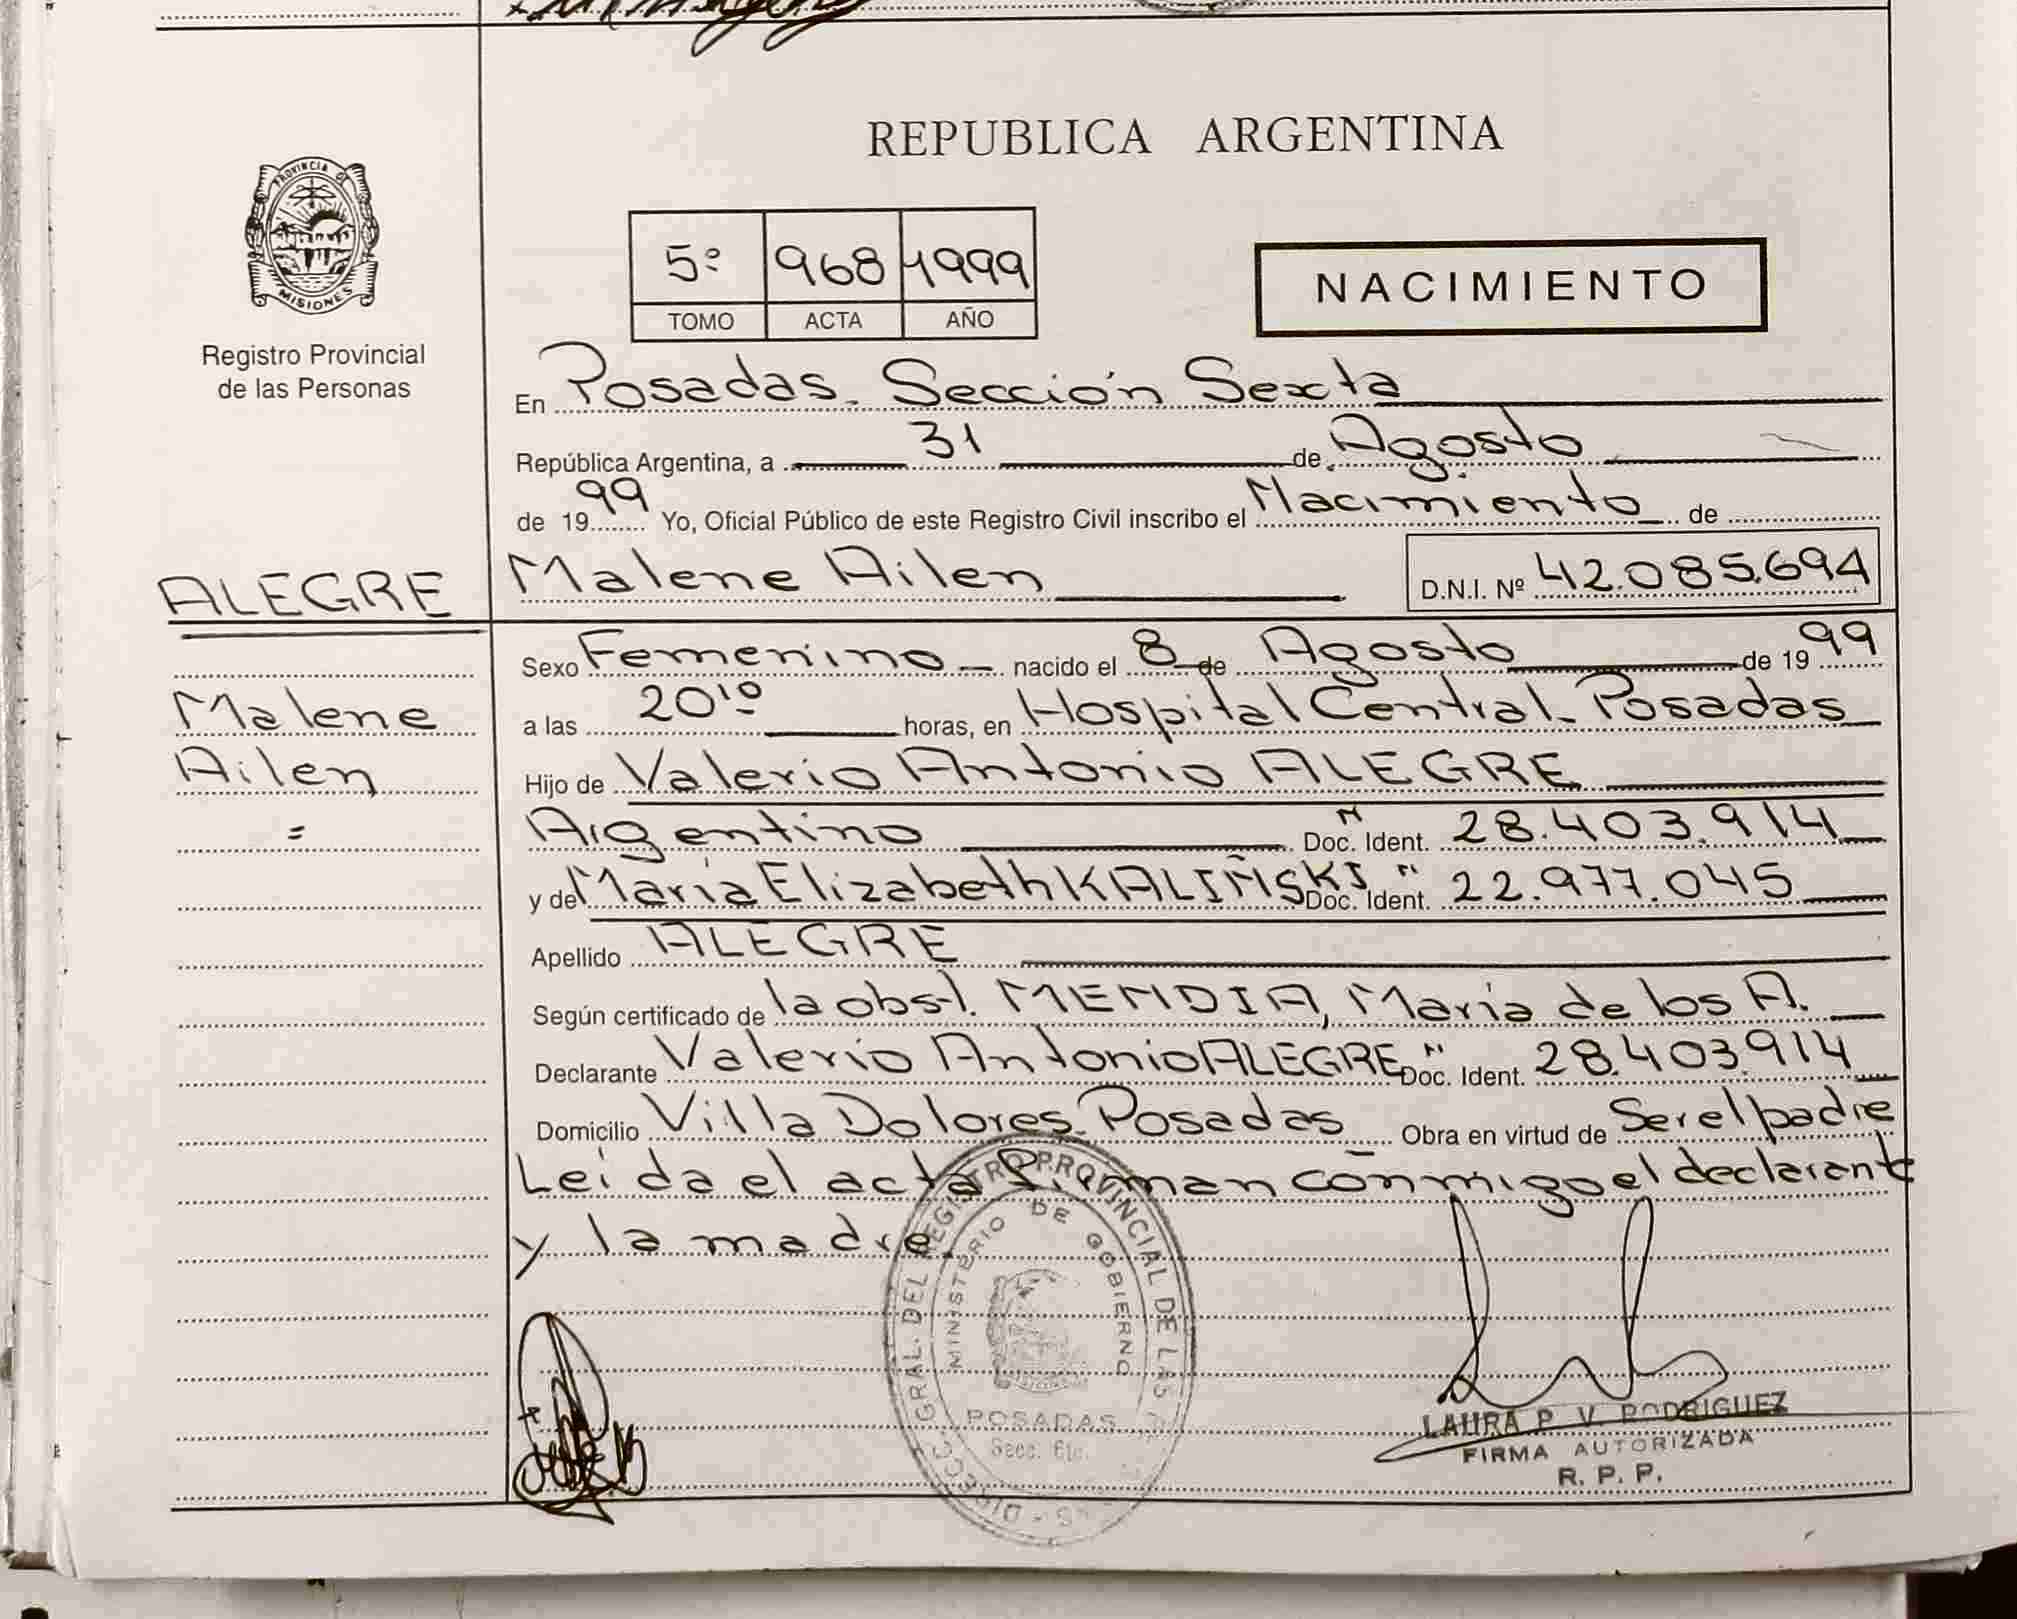 REPUBLICA ARGENTINA
PROVINCIA DE
MISIONES
Registro Provincial
de las Personas
5º 968 1999
TOMO ACTA AÑO
NACIMIENTO
En Posadas. Sección Sexta
República Argentina, a 31 de Agosto
de 1999 Yo, Oficial Público de este Registro Civil inscribo el Nacimiento de
ALEGRE Malene Ailen D.N.I. Nº 42.085.694
Sexo Femenino nacido el 8 de Agosto de 1999
Malene
a las 20¹⁰ horas, en Hospital Central - Posadas
Ailen
Hijo de Valerio Antonio ALEGRE
=
Argentino Doc. Ident. N 28.403.914
y de María Elizabeth KALIÑSKI Doc. Ident. N 22.977.045
Apellido ALEGRE
Según certificado de la obst. MENDIA, María de los A.
Declarante Valerio Antonio ALEGRE Doc. Ident. N 28.403.914
Domicilio Villa Dolores - Posadas Obra en virtud de Ser el padre
Leída el acta Firman conmigo el declarante
y la madre.
DIRECC. GRAL. DEL REGISTRO PROVINCIAL DE LAS
MINISTERIO DE GOBIERNO
POSADAS
Secc. 6ta.
LAURA P. V. RODRIGUEZ
FIRMA AUTORIZADA
R. P. P.